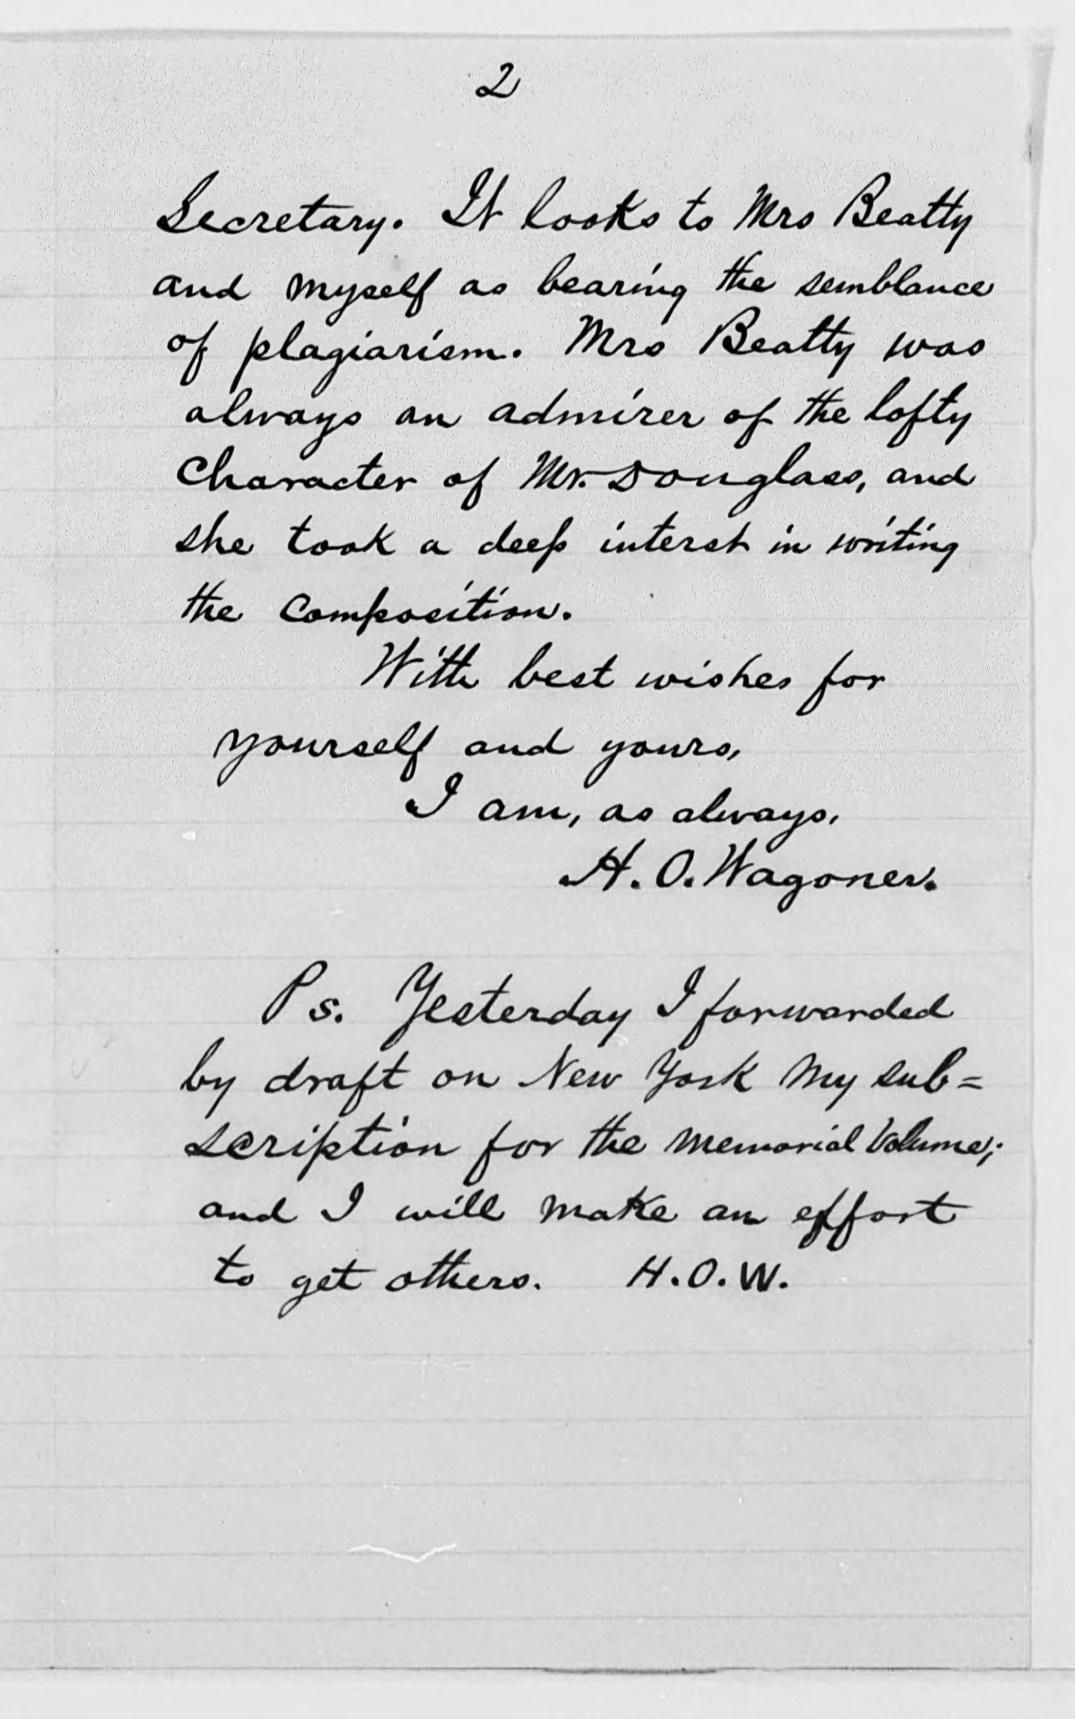 2
Secretary. It looks to Mrs Beatty
and myself as bearing the semblance
of plagiarism. Mrs Beatty was
always an admirer of the lofty
Character of Mr. Douglass, and
she took a deep interest in writing
the Composition.
With best wishes for
yourself and yours,
I am, as always,
H. O. Wagoner.
Ps. Yesterday I forwarded
by draft on New York my sub=
scription for the Memorial Volume;
and I will make an effort
to get others. H.O.W.